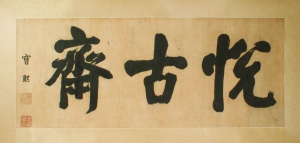 悅古齋
寶熙